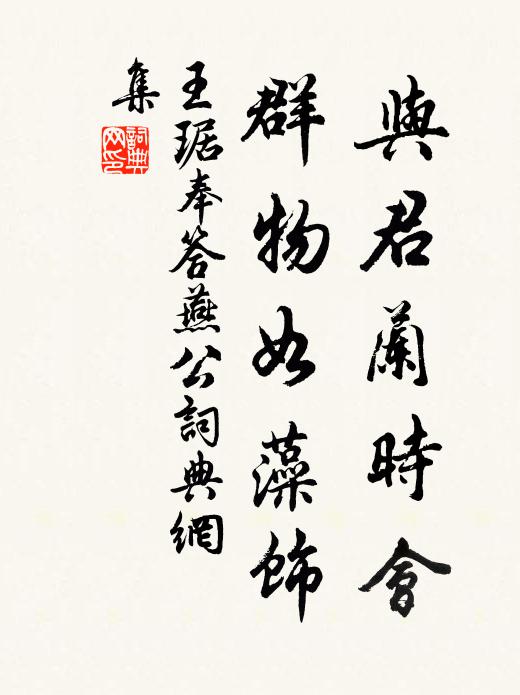 與君蘭時會
群物如藻飾
王琚奉答燕公詞典網
集
詞典網印